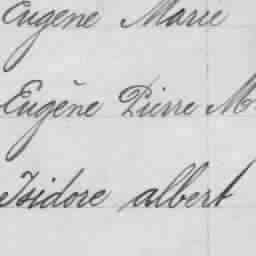 Eugène Marie
Eugène Pierre M
Isidore albert